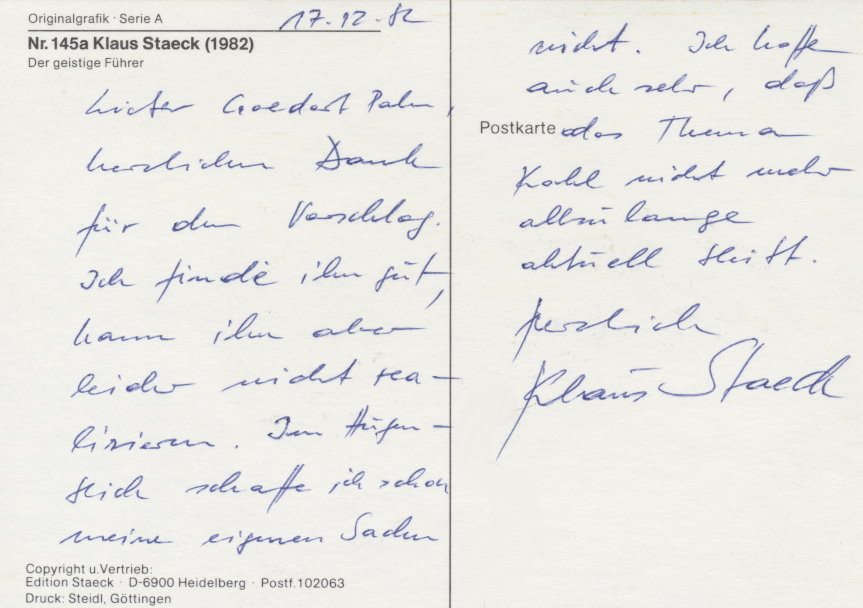 Originalgrafik · Serie A
17.12.82
Nr. 145a Klaus Staeck (1982)
Der geistige Führer
Lieber Goedart Palm,
herzlichen Dank
für den Vorschlag.
Ich finde ihn gut,
kann ihn aber
leider nicht rea-
lisieren. Im Augen-
blick schaffe ich schon
meine eigenen Sachen
nicht. Ich hoffe
auch sehr, daß
Postkarte
das Thema
Kohl nicht mehr
allzu lange
aktuell bleibt.
Herzlich
Klaus Staeck
Copyright u.Vertrieb:
Edition Staeck · D-6900 Heidelberg · Postf.102063
Druck: Steidl, Göttingen